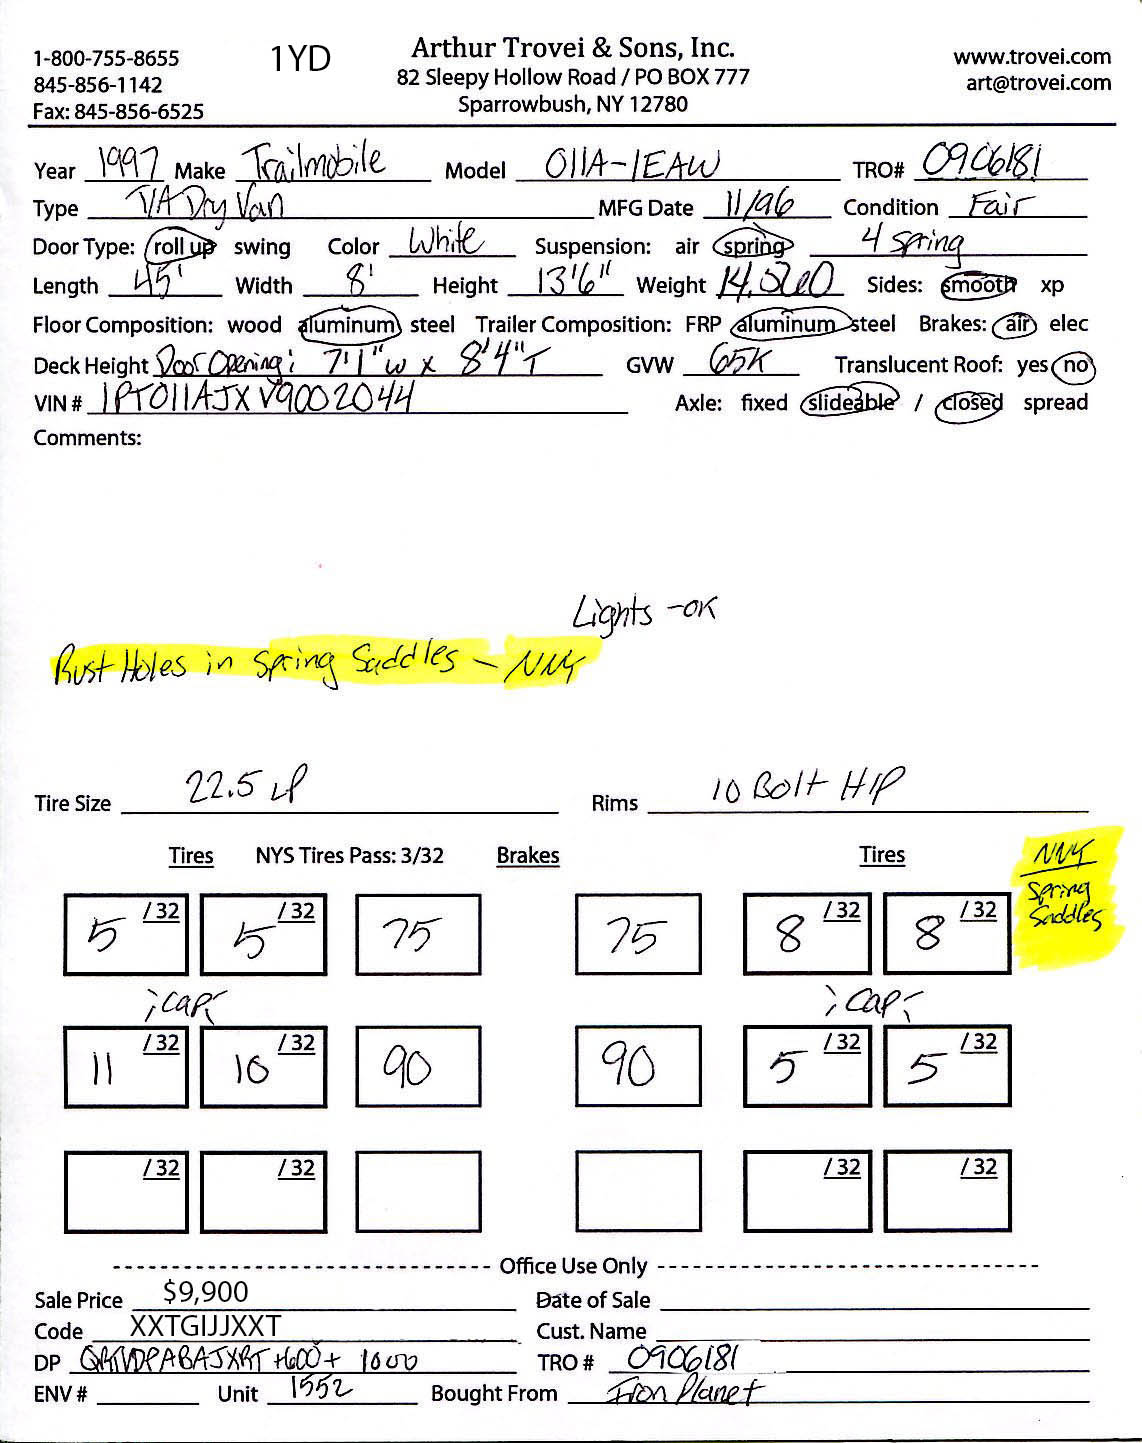 1-800-755-8655 1YD Arthur Trovei & Sons, Inc. www.trovei.com
845-856-1142 82 Sleepy Hollow Road / PO BOX 777 art@trovei.com
Fax: 845-856-6525 Sparrowbush, NY 12780
Year 1997 Make Trailmobile Model 011A-1EAW TRO# 0906181
Type T/A Dry Van MFG Date 11/96 Condition Fair
Door Type: roll up swing Color White Suspension: air spring 4 Spring
Length 45' Width 8' Height 13'6" Weight Sides: smooth xp
Floor Composition: wood aluminum steel Trailer Composition: FRP aluminum steel Brakes: air elec
Deck Height Door Opening: 7'1"w x 8'4"T GVW 65K Translucent Roof: yes no
VIN # 1PT011AJXV9002044 Axle: fixed slideable / closed spread
Comments:
Lights -OK
Rust Holes in Spring Saddles - NNY
Tire Size 22.5 LP Rims 10 Bolt H/P
Tires NYS Tires Pass: 3/32 Brakes Tires NNY
Spring
Saddles
5 /32 5 /32 75 75 8 /32 8 /32
;cap; ;cap;
11 /32 10 /32 90 90 5 /32 5 /32
/32 /32 /32 /32
Office Use Only
Sale Price $9,900 Date of Sale
Code XXTGIJJXXT Cust. Name
DP +600+ 1000 TRO # 0906181
ENV # Unit 1552 Bought From Iron Planet